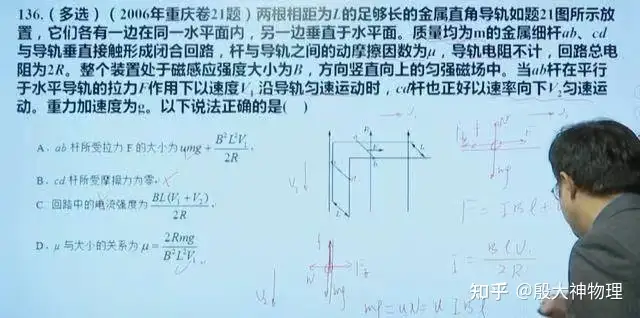 136.（多选）（2006年重庆卷21题）两根相距为L的足够长的金属直角导轨如题21图所示放
置，它们各有一边在同一水平面内，另一边垂直于水平面。质量均为m的金属细杆ab、cd
与导轨垂直接触形成闭合回路，杆与导轨之间的动摩擦因数为μ，导轨电阻不计，回路总电
阻为2R。整个装置处于磁感应强度大小为B，方向竖直向上的匀强磁场中。当ab杆在平行
于水平导轨的拉力F作用下以速度V₁沿导轨匀速运动时，cd杆也正好以速率向下V₂匀速运
动。重力加速度为g。以下说法正确的是( )
A．ab杆所受拉力F的大小为umg+B²L²V₁/2R
B．cd杆所受摩擦力为零
C．回路中的电流强度为BL(V₁+V₂)/2R
D．μ与大小的关系为μ=2Rmg/B²L²V₁
F = IBl+
I = BlV₁/2R
mg=uN=u IBl
V₁
V₂
mg
mg
知乎 @殷大神物理